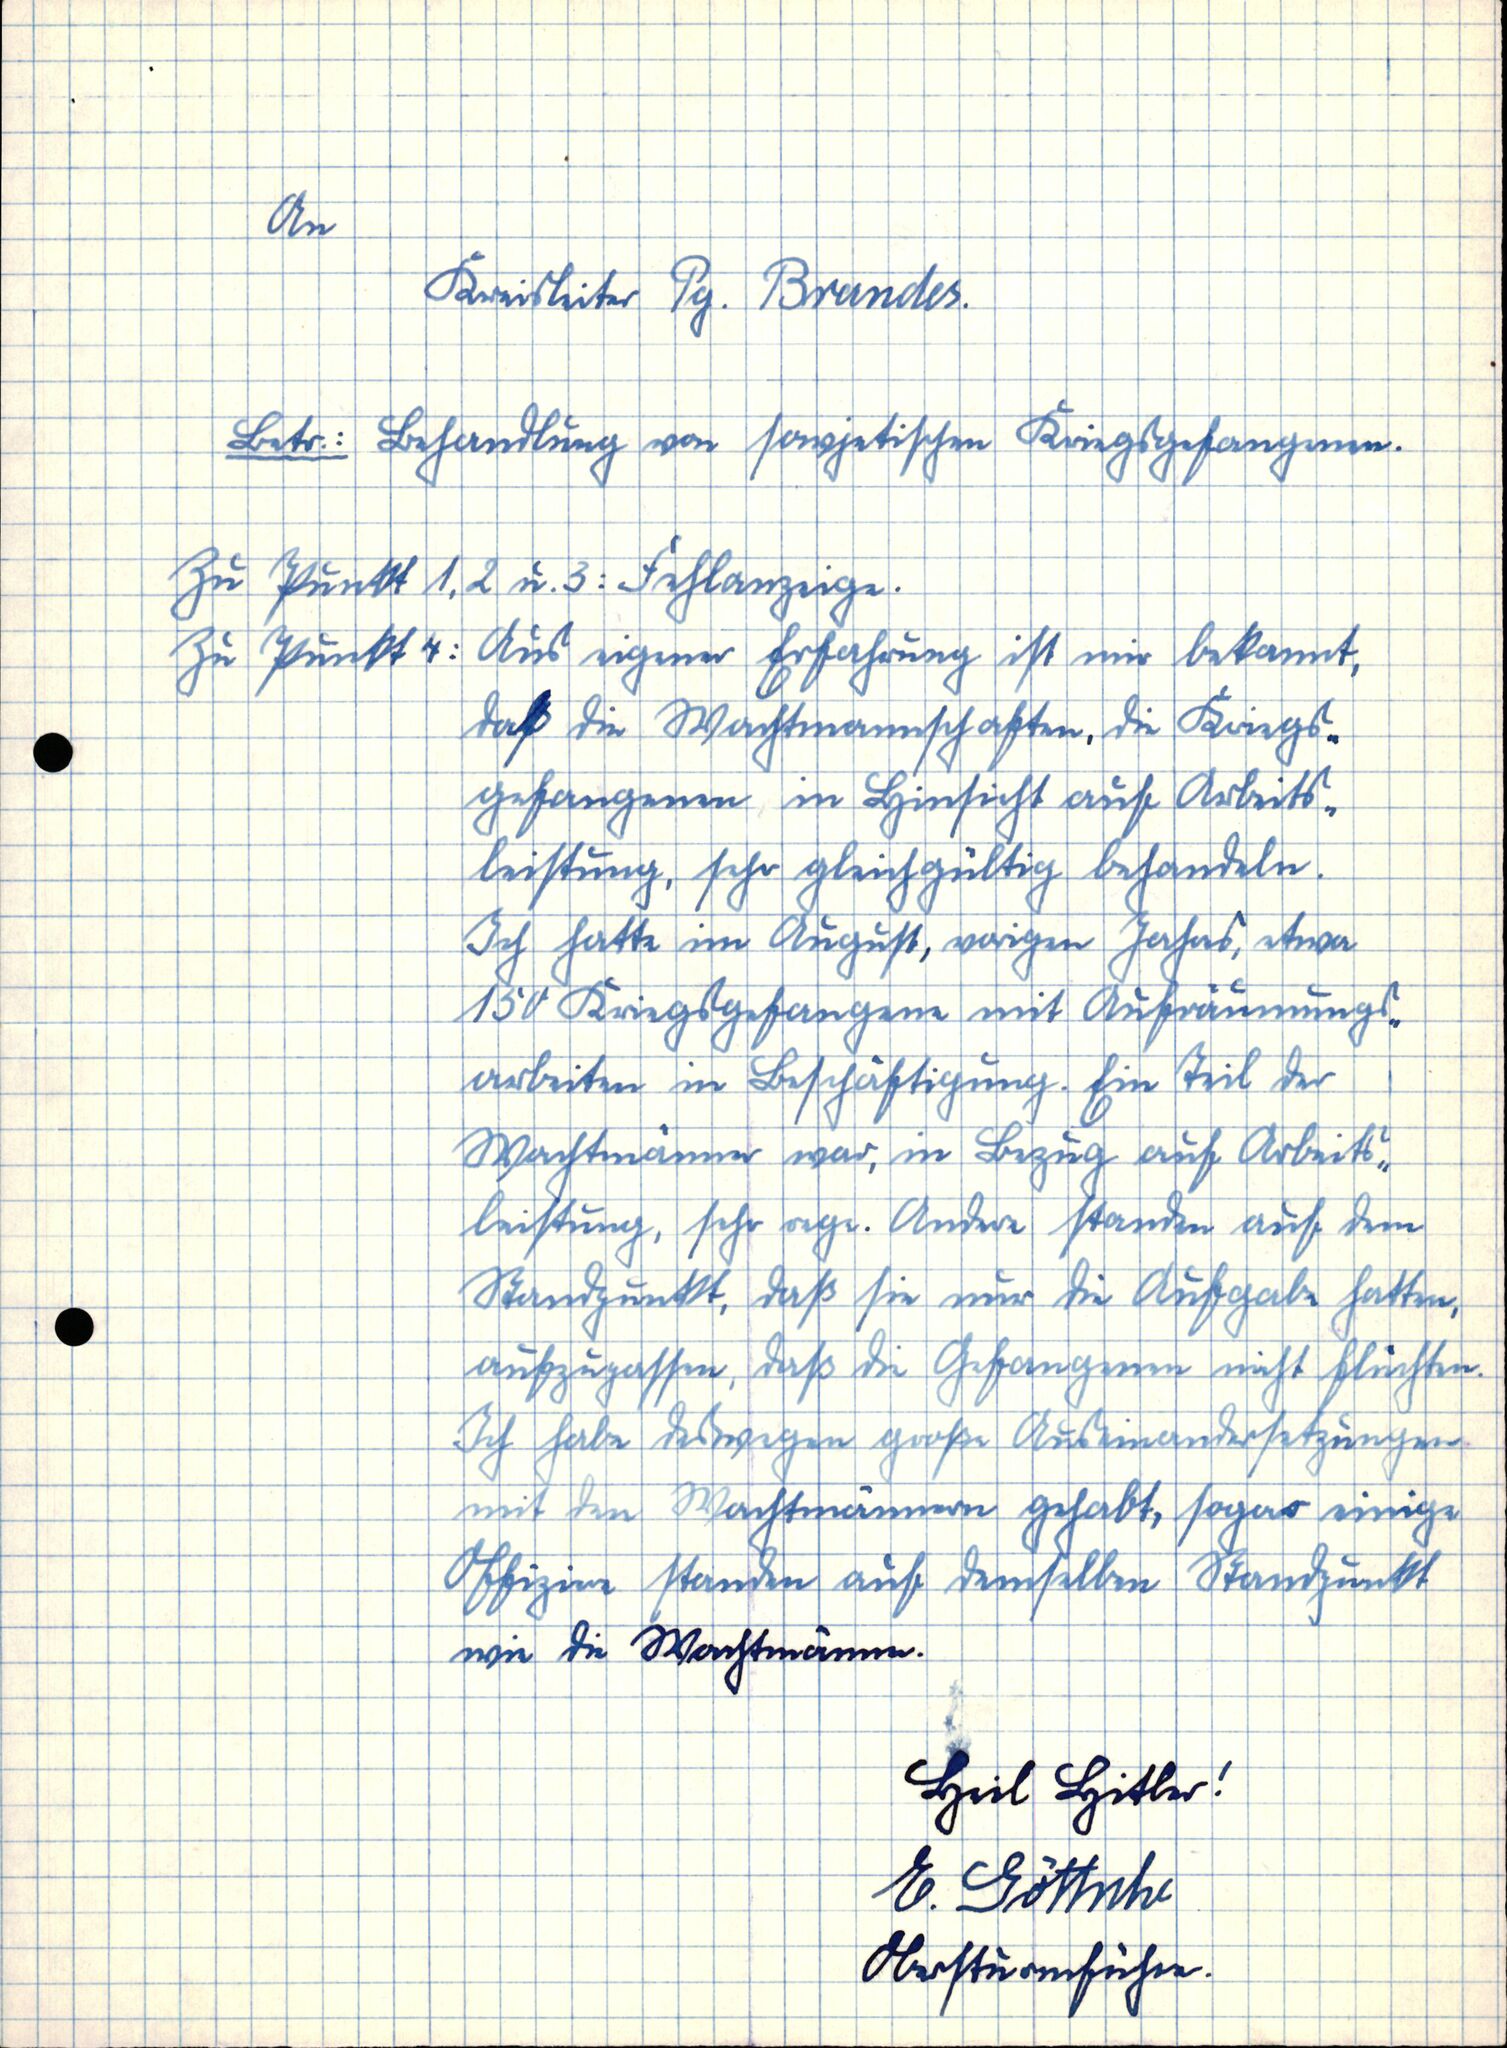 An
Kreisleiter Pg. Brandes.
Betr.: Behandlung von sowjetischen Kriegsgefangenen.
Zu Punkt 1, 2 u. 3: Fehlanzeige.
Zu Punkt 4: Aus eigener Erfahrung ist mir bekannt,
daß die Wachtmannschaften, die Kriegs-
gefangenen in Hinsicht auf Arbeits-
leistung, sehr gleichgültig behandeln.
Ich hatte im August, vorigen Jahres, etwa
150 Kriegsgefangene mit Aufräumungs-
arbeiten in Beschäftigung. Ein Teil der
Wachtmänner war, in Bezug auf Arbeits-
leistung, sehr rege. Andere standen auf dem
Standpunkt, daß sie nur die Aufgabe hatten,
aufzupassen, daß die Gefangenen nicht flüchten.
Ich habe deswegen große Auseinandersetzungen
mit den Wachtmännern gehabt, sogar einige
Offiziere standen auf demselben Standpunkt
wie die Wachtmänner.
Heil Hitler!
E. Göttsche
Obersturmführer.